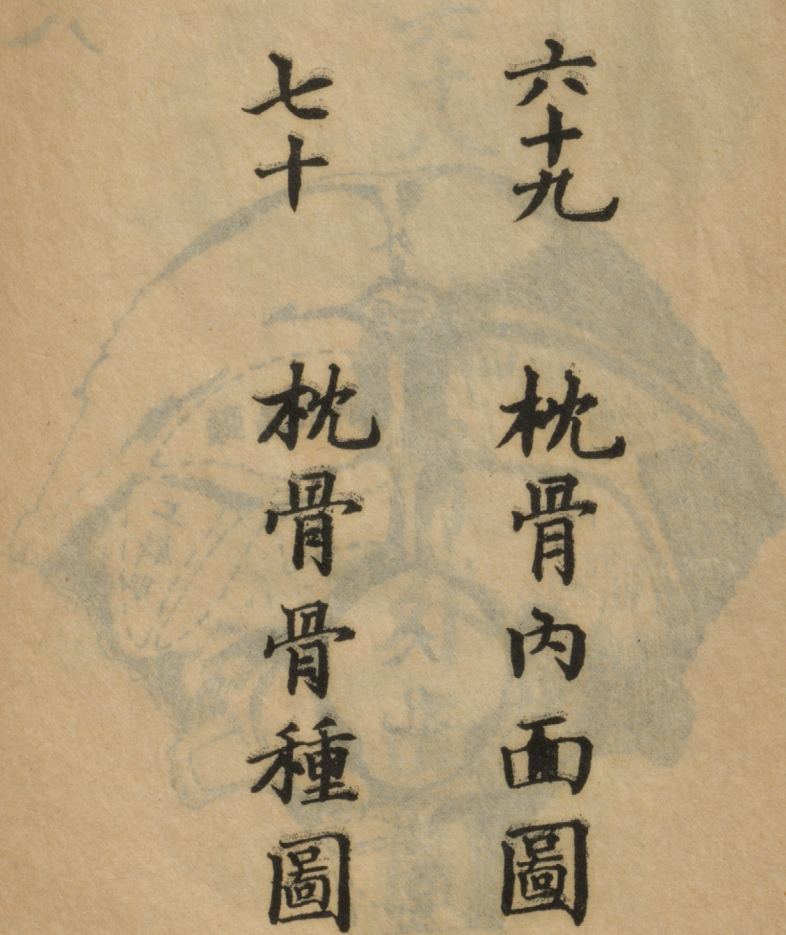 六十九 枕骨內面圖
七十 枕骨骨種圖